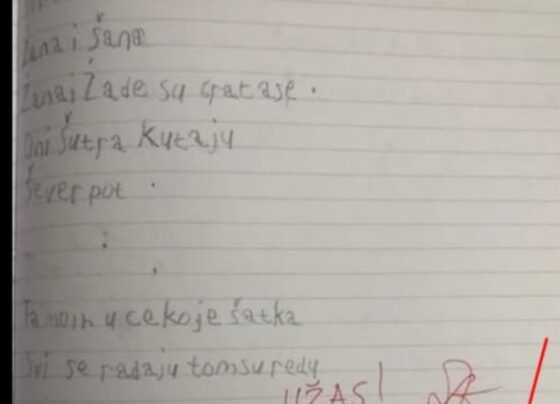 Žana i Šana
Žana i Žade su cpatase.
Oni šutra Kutaju
Šever pot.
Tamoin u ce koje šatka
Svi se radaju tomsuredu
UŽAS!